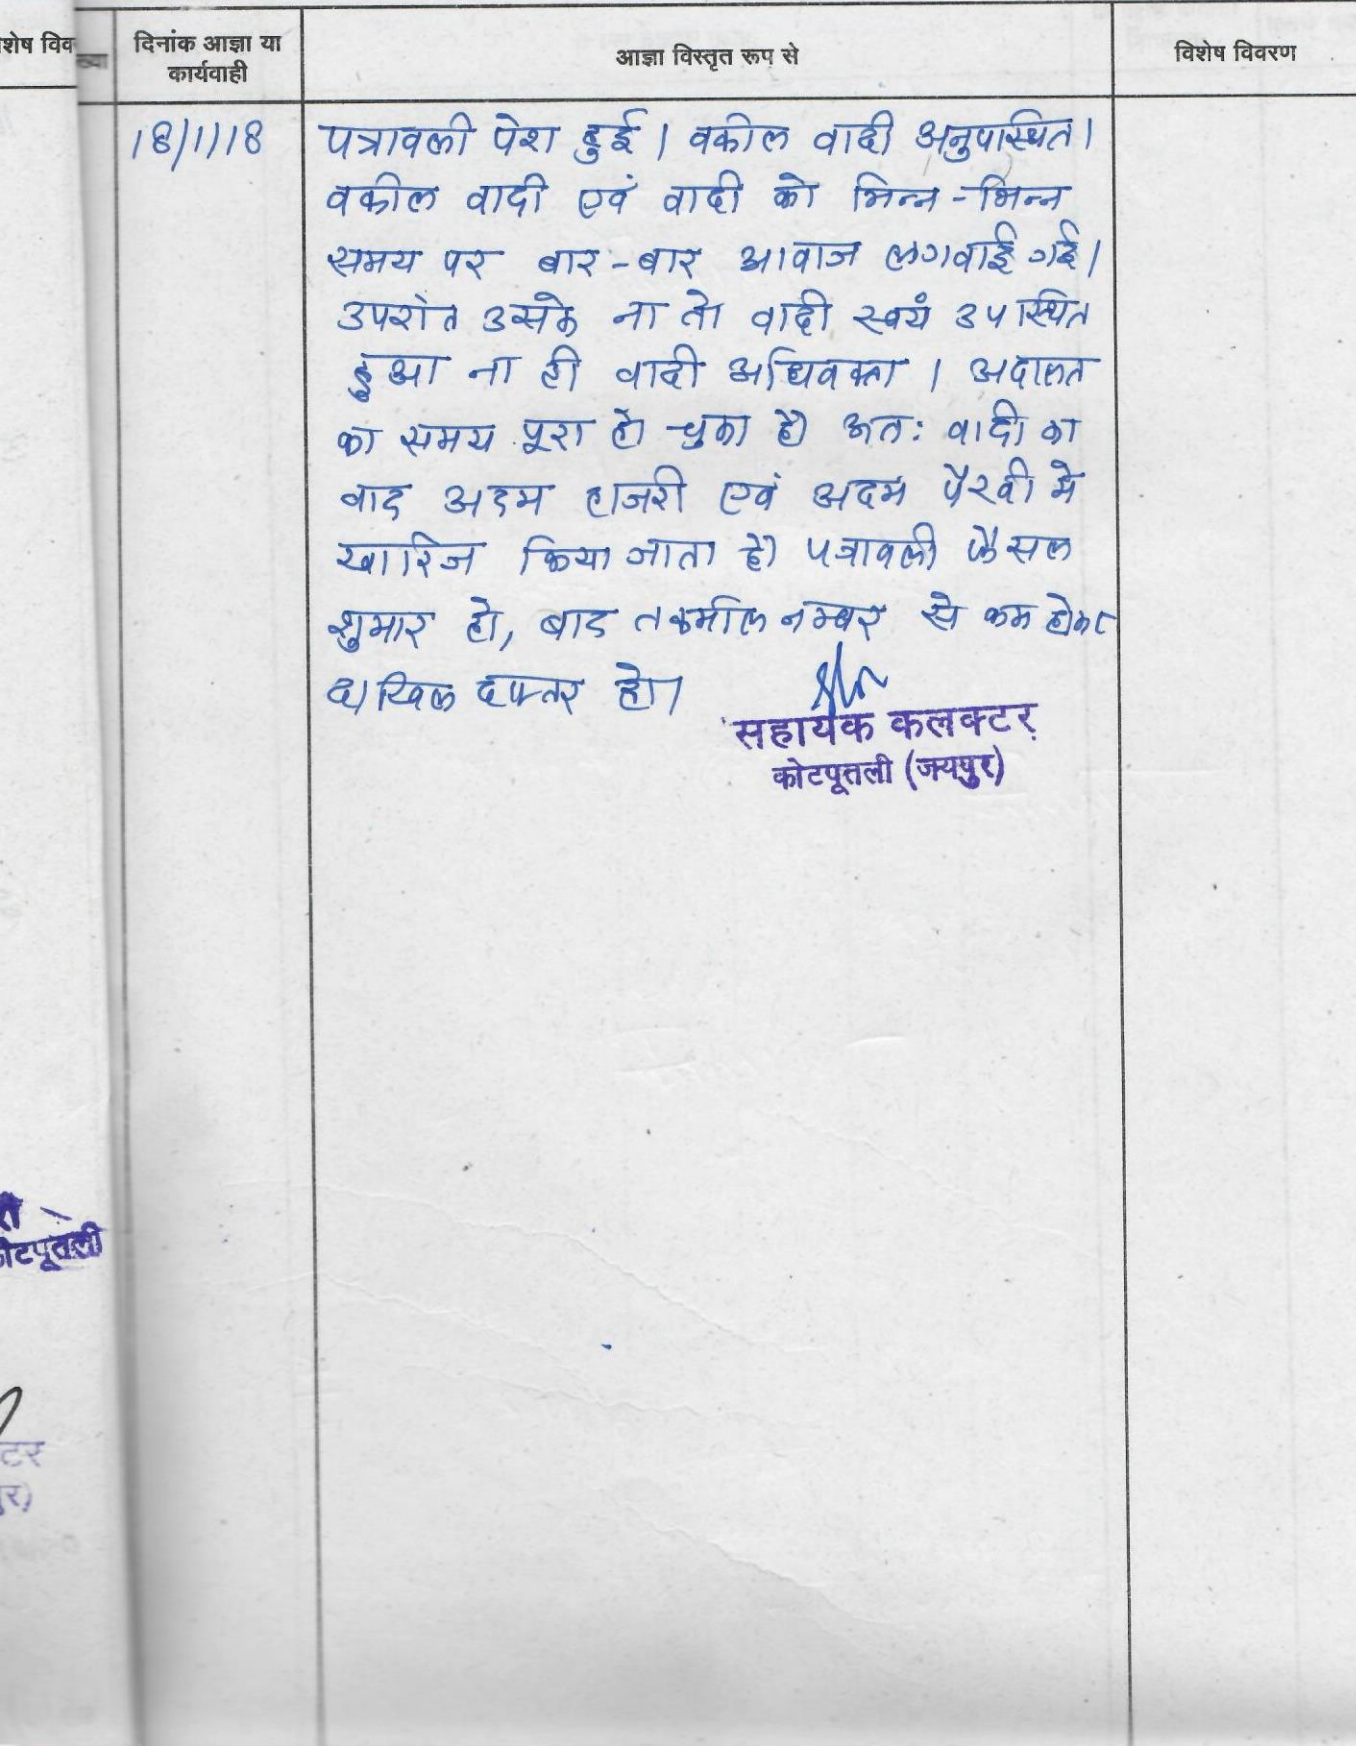 शेष विव
ख्या
दिनांक आज्ञा या
कार्यवाही
आज्ञा विस्तृत रूप से
विशेष विवरण
18/1/18
पत्रावली पेश हुई। वकील वादी अनुपस्थित।
वकील वादी एवं वादी को भिन्न-भिन्न
समय पर बार-बार आवाज लगवाई गई।
उपरांत उसके ना तो वादी स्वयं उपस्थित
हुआ ना ही वादी अधिवक्ता। अदालत
का समय पूरा हो चुका है। अतः वादी का
वाद अदम हाजरी एवं अदम पैरवी मे
खारिज किया जाता है। पत्रावली फैसल
शुमार हो, बाद तकमील नम्बर से कम होकर
दाखिल दफ्तर हो।
सहायक कलक्टर
कोटपूतली (जयपुर)
कोटपूतली
टर
पुर)